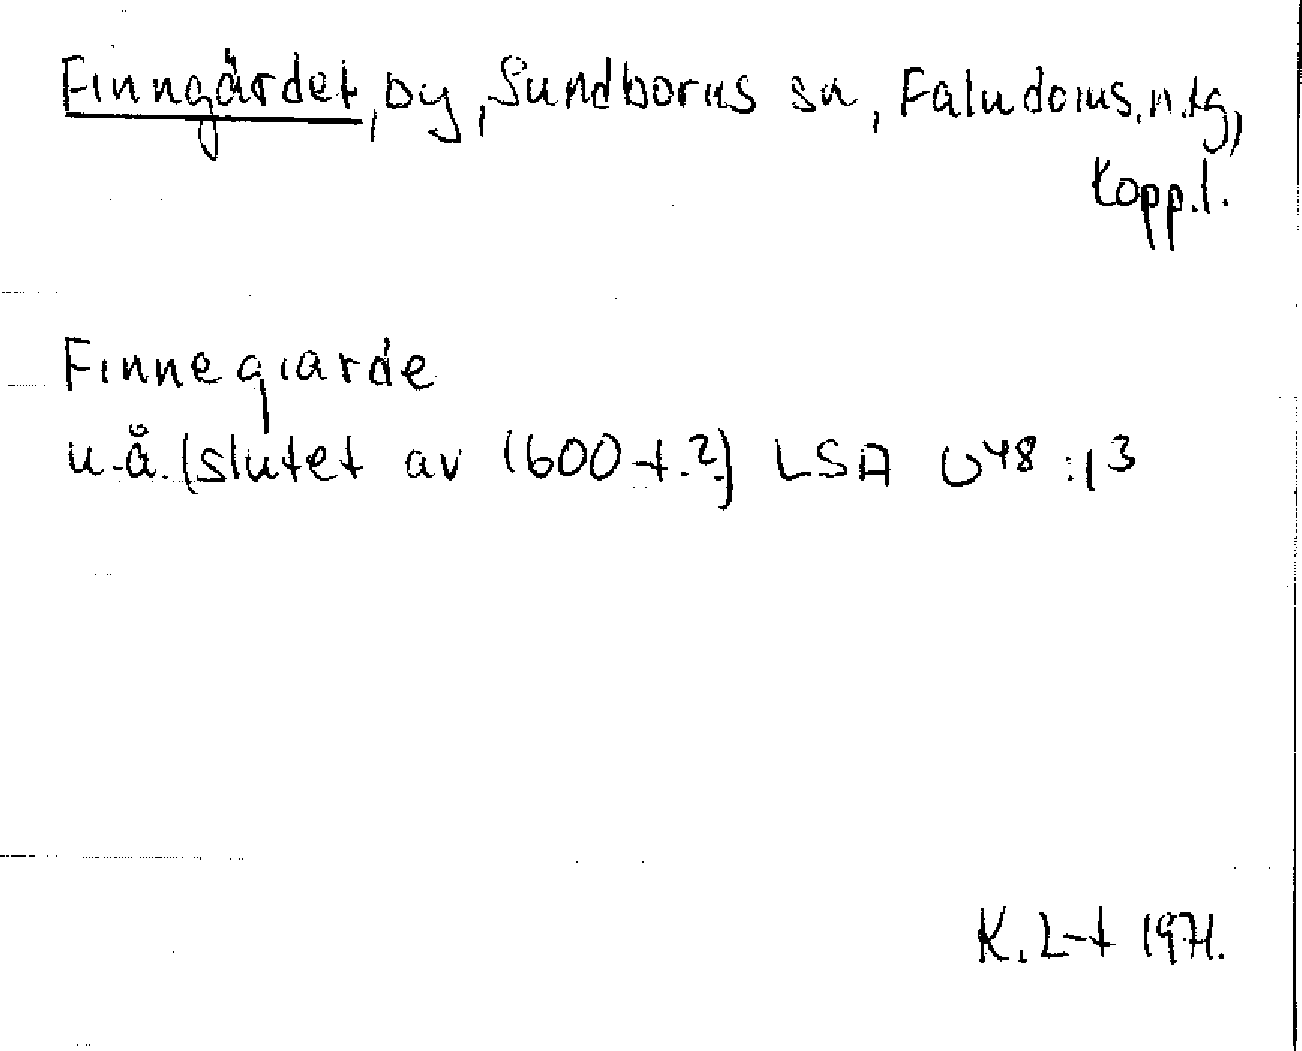 Finngärdet, by, Sundborns sn, Falu doms. n. tg,
Kopp. l.
Finnegiarde
u.å. (slutet av 1600-t.?) LSA U48:13
K. L-t 1971.